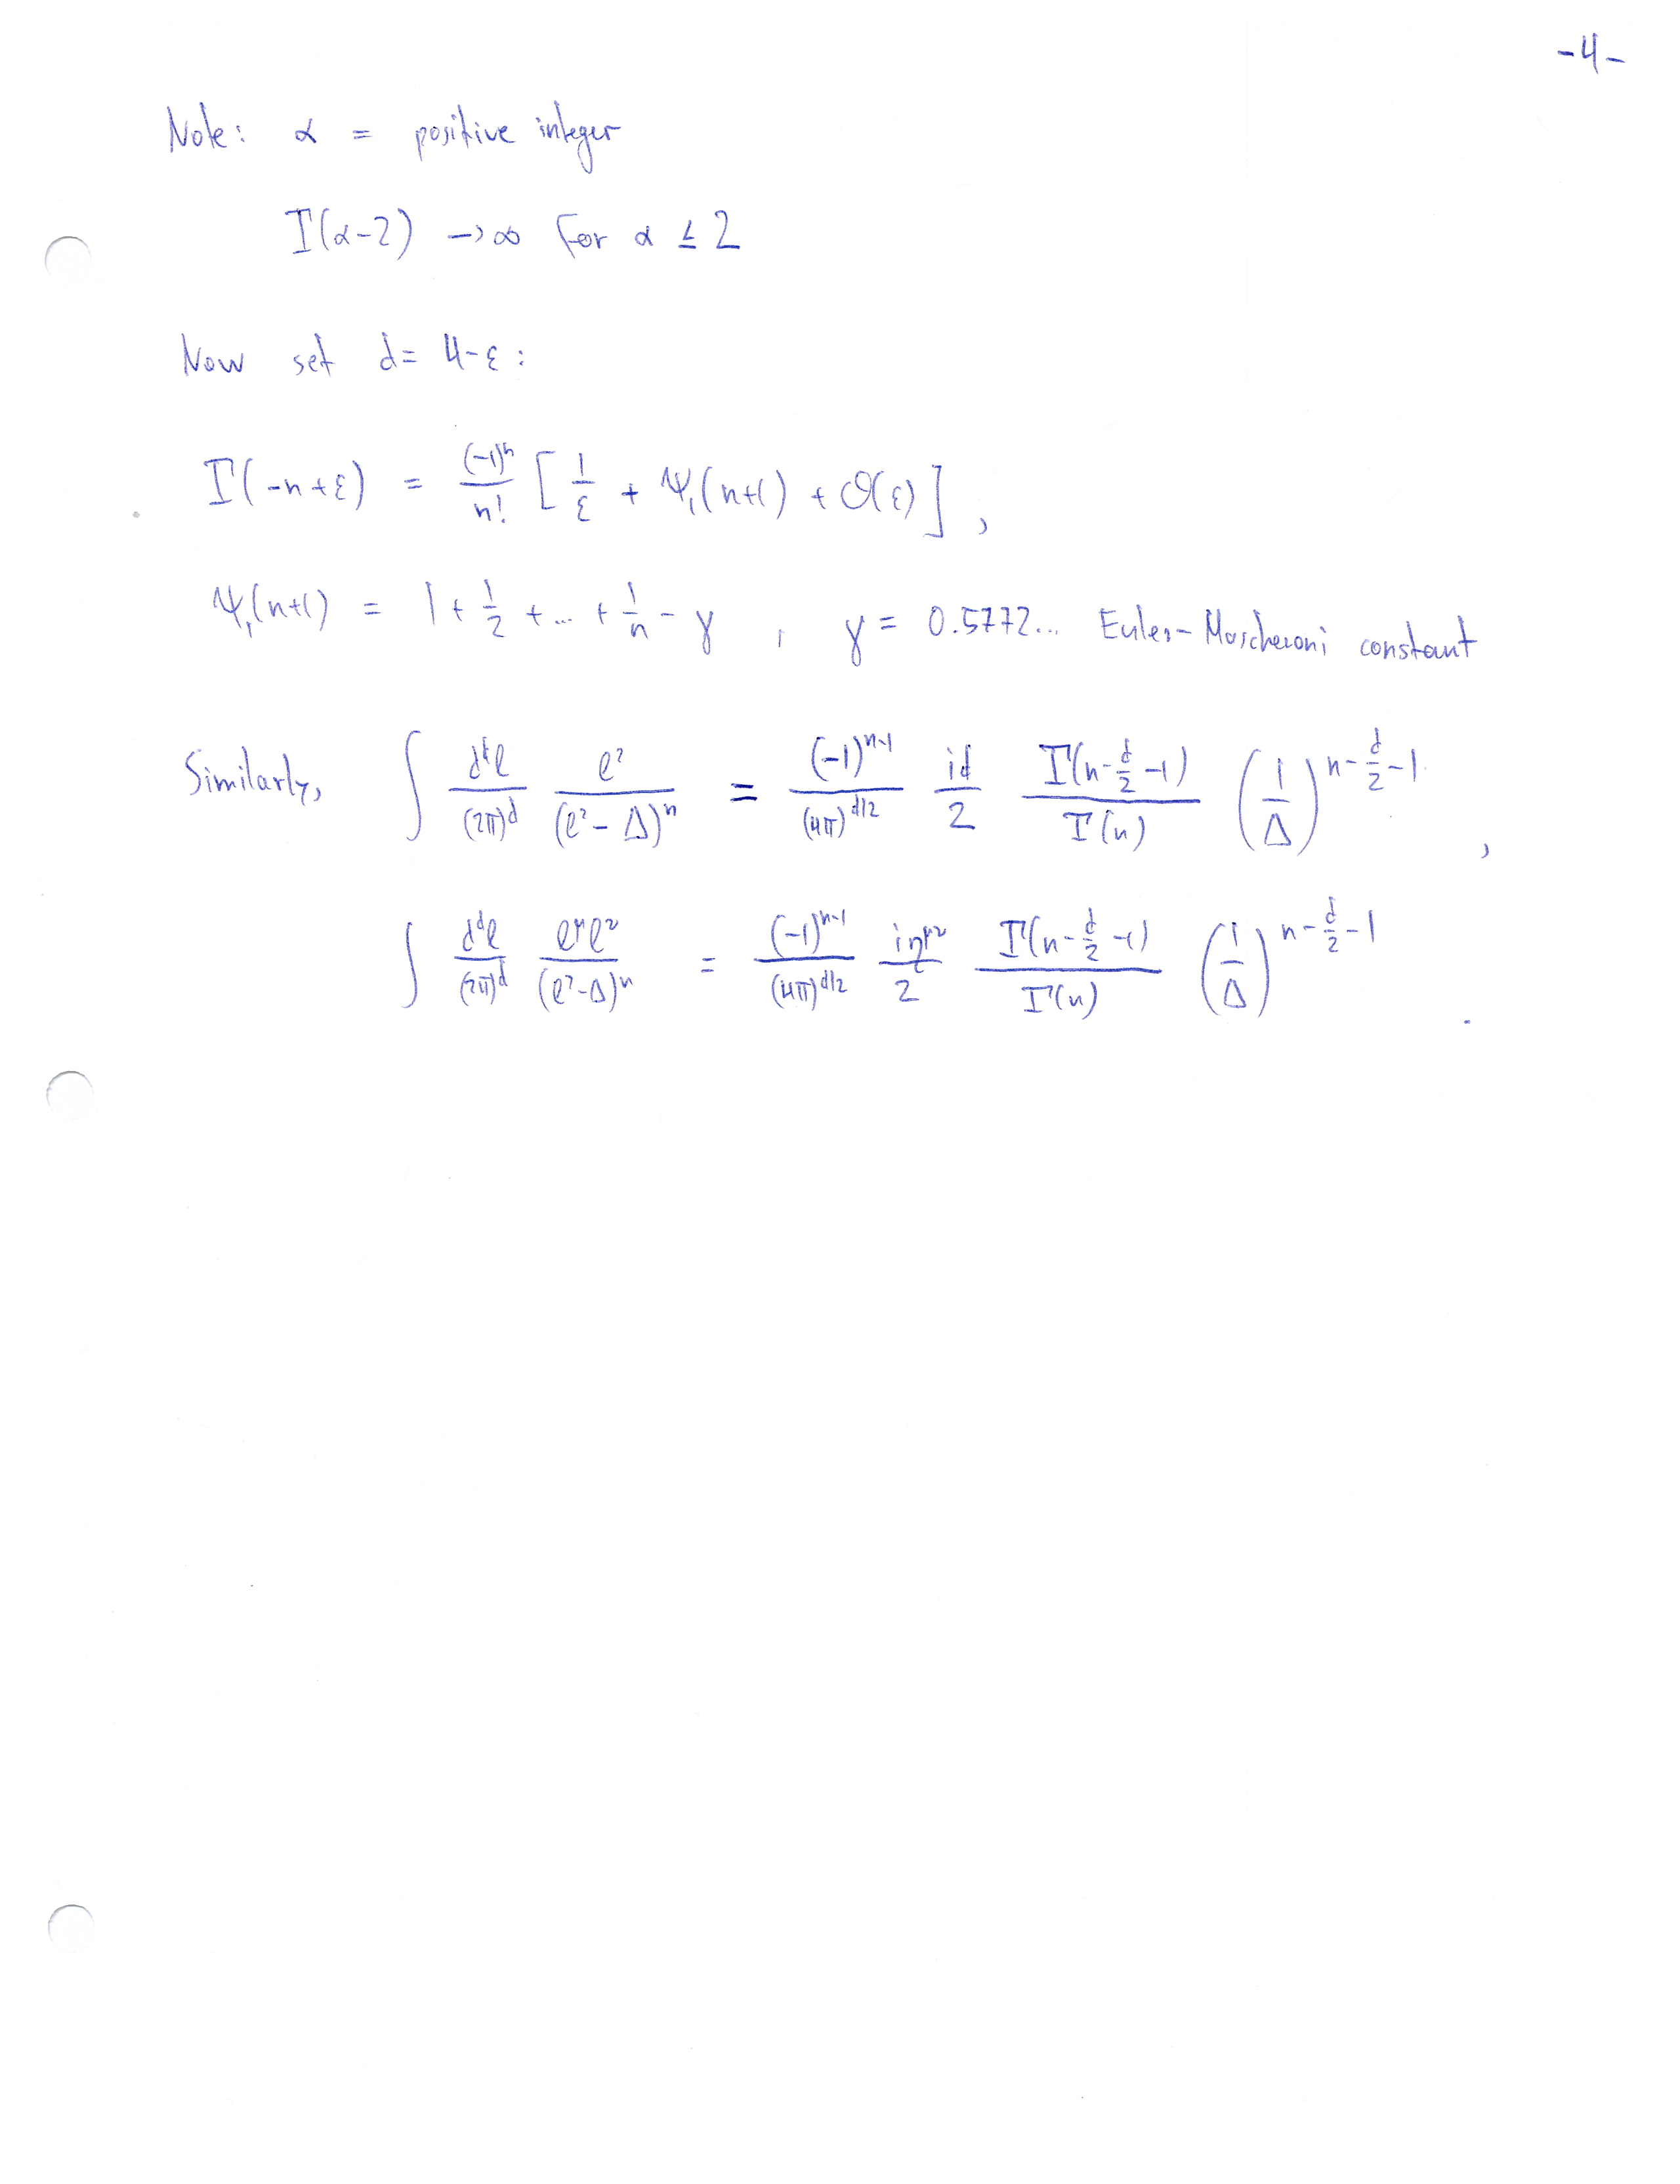 -4-
Note: α = positive integer
Γ(α-2) → ∞ for α ≤ 2
Now set d = 4-ε :
Γ(-n+ε) = \frac{(-1)^n}{n!} [ \frac{1}{ε} + ψ_1(n+1) + O(ε) ] ,
ψ_1(n+1) = 1 + \frac{1}{2} + ... + \frac{1}{n} - γ , γ = 0.5772... Euler-Mascheroni constant
Similarly, ∫ \frac{d^dℓ}{(2π)^d} \frac{ℓ^2}{(ℓ^2 - Δ)^n} = \frac{(-1)^{n-1}}{(4π)^{d/2}} \frac{id}{2} \frac{Γ(n-\frac{d}{2}-1)}{Γ(n)} (\frac{1}{Δ})^{n-\frac{d}{2}-1} ,
∫ \frac{d^dℓ}{(2π)^d} \frac{ℓ^μ ℓ^ν}{(ℓ^2-Δ)^n} = \frac{(-1)^{n-1}}{(4π)^{d/2}} \frac{iη^{μν}}{2} \frac{Γ(n-\frac{d}{2}-1)}{Γ(n)} (\frac{1}{Δ})^{n-\frac{d}{2}-1} .